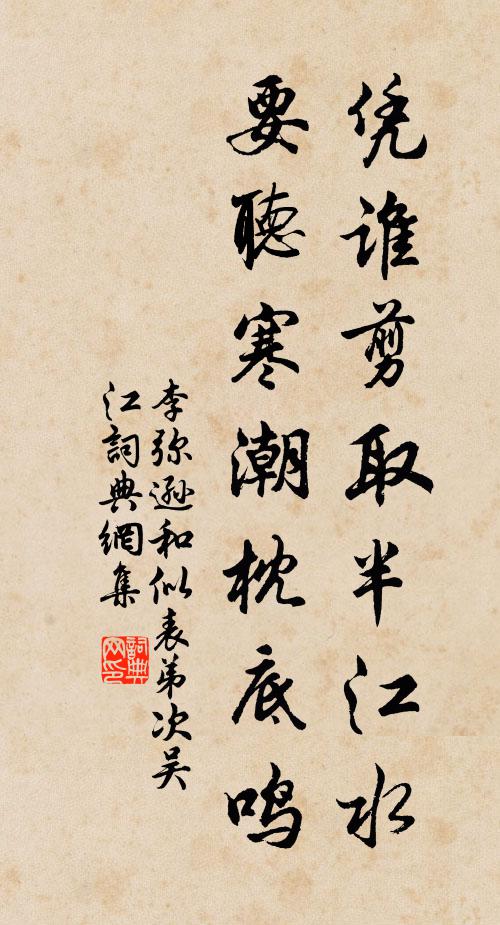 凭谁剪取半江水
要聽寒潮枕底鸣
李弥遜和似表弟次吴
江詞典網集
詞典
网印